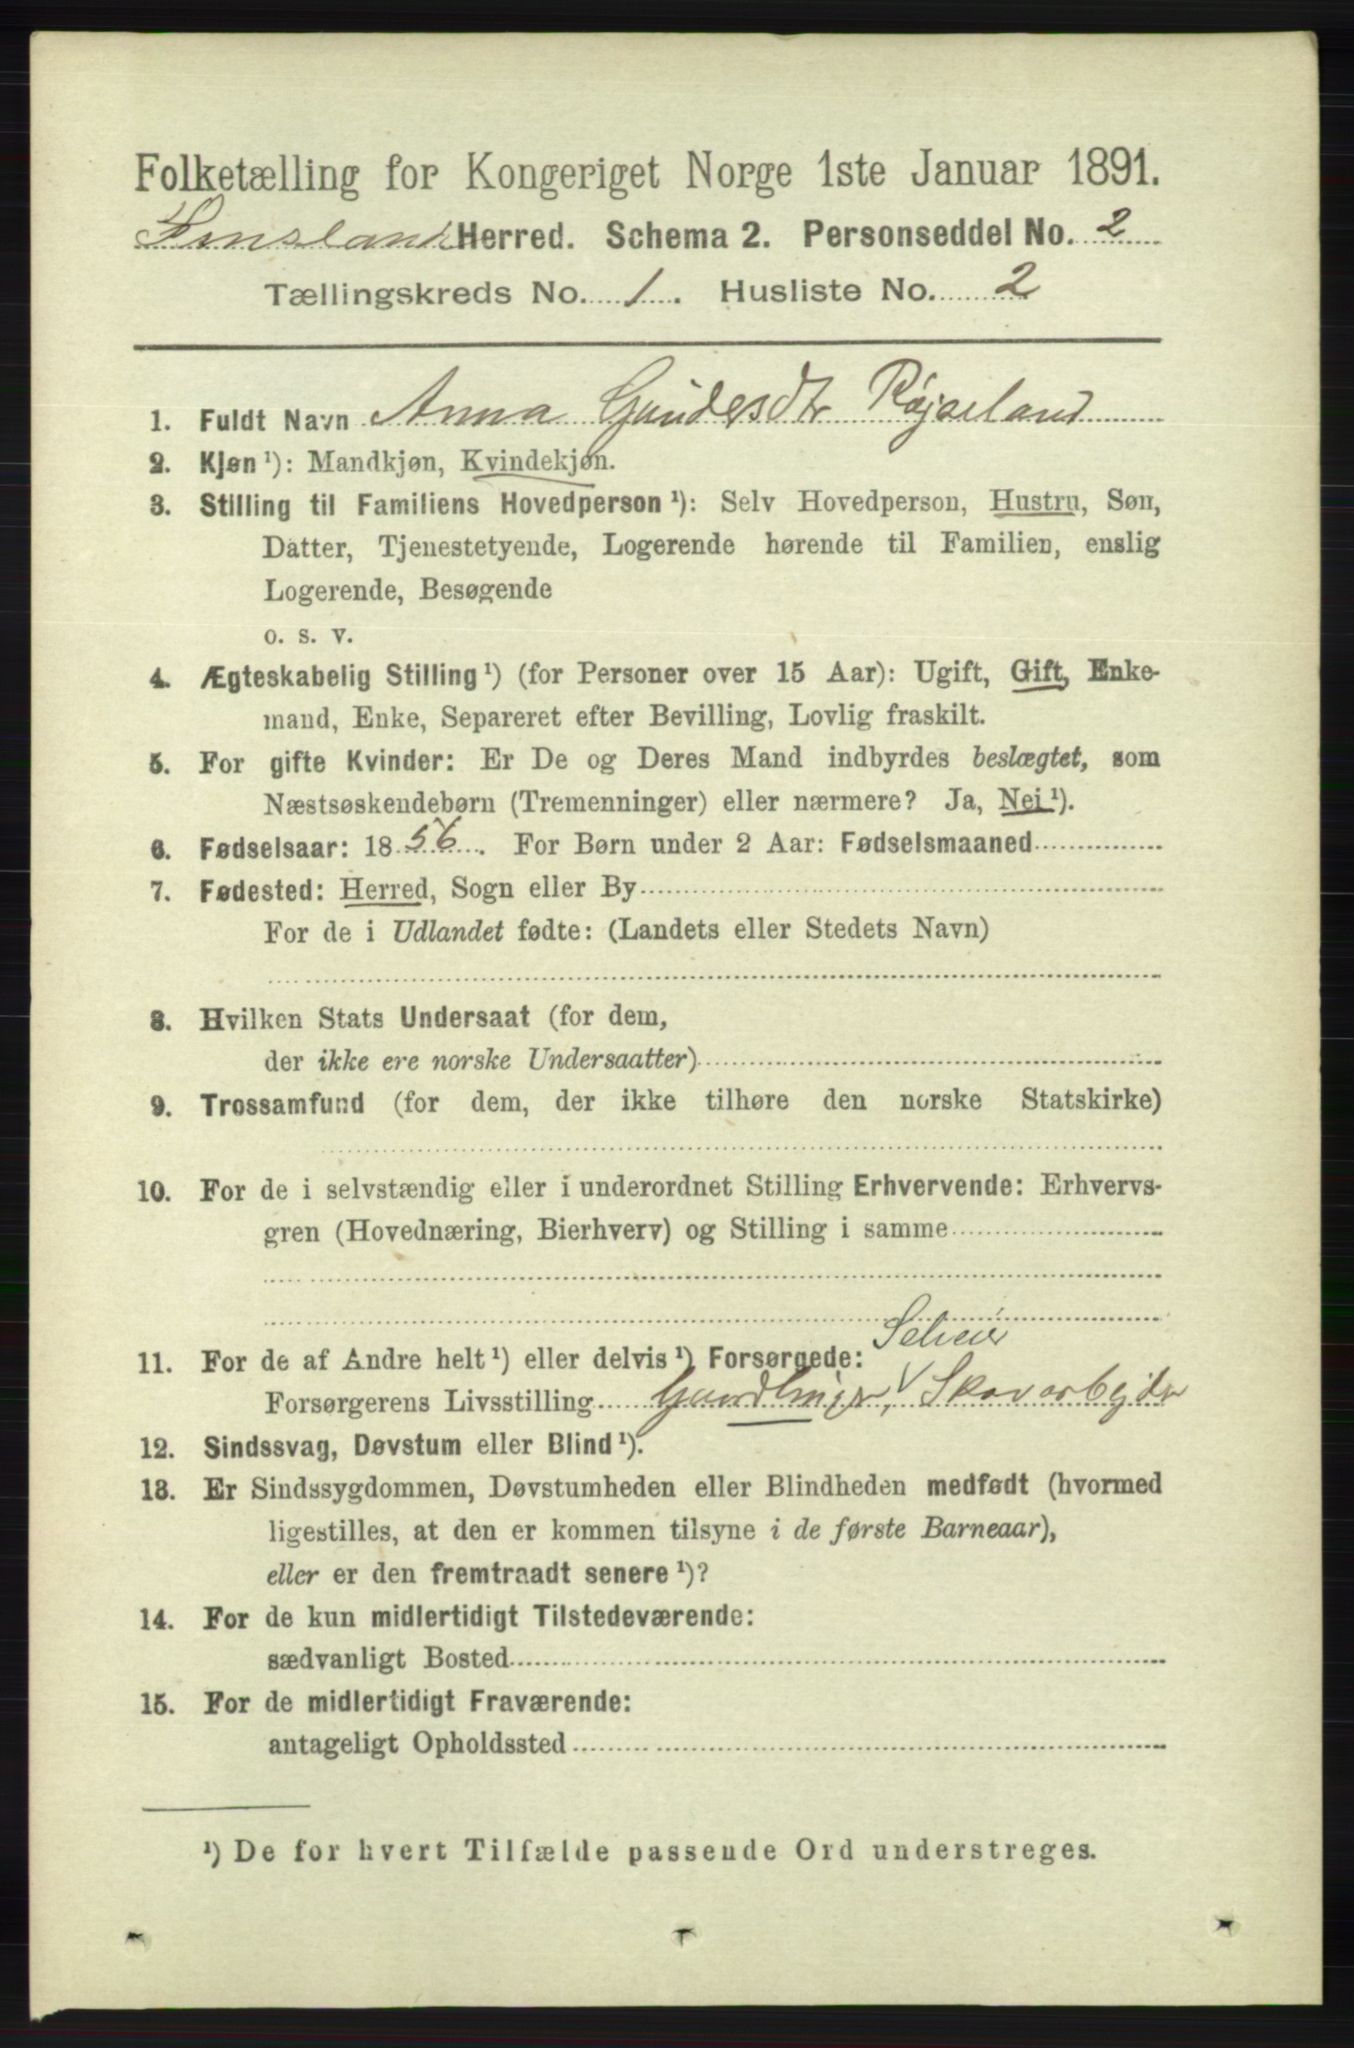 Folketælling for Kongeriget Norge 1ste Januar 1891.
Herred. Schema 2. Personseddel No. 2
Tællingskreds No. 1. Husliste No. 2
1. Fuldt Navn Anna Gundesdtr Røjseland
2. Kjøn ¹): Mandkjøn, Kvindekjøn.
3. Stilling til Familiens Hovedperson ¹): Selv Hovedperson, Hustru, Søn,
Datter, Tjenestetyende, Logerende hørende til Familien, enslig
Logerende, Besøgende
o. s. v.
4. Ægteskabelig Stilling ¹) (for Personer over 15 Aar): Ugift, Gift, Enke-
mand, Enke, Separeret efter Bevilling, Lovlig fraskilt.
5. For gifte Kvinder: Er De og Deres Mand indbyrdes beslægtet, som
Næstsøskendebørn (Tremenninger) eller nærmere? Ja, Nei ¹).
6. Fødselsaar: 1856. For Børn under 2 Aar: Fødselsmaaned
7. Fødested: Herred, Sogn eller By
For de i Udlandet fødte: (Landets eller Stedets Navn)
8. Hvilken Stats Undersaat (for dem,
der ikke ere norske Undersaatter)
9. Trossamfund (for dem, der ikke tilhøre den norske Statskirke)
10. For de i selvstændig eller i underordnet Stilling Erhvervende: Erhvervs-
gren (Hovednæring, Bierhverv) og Stilling i samme
Seleier
11. For de af Andre helt ¹) eller delvis ¹) Forsørgede:
Forsørgerens Livsstilling Gaardbruger, Skovarbejder
12. Sindssvag, Døvstum eller Blind ¹).
13. Er Sindssygdommen, Døvstumheden eller Blindheden medfødt (hvormed
ligestilles, at den er kommen tilsyne i de første Barneaar),
eller er den fremtraadt senere ¹)?
14. For de kun midlertidigt Tilstedeværende:
sædvanligt Bosted
15. For de midlertidigt Fraværende:
antageligt Opholdssted
¹) De for hvert Tilfælde passende Ord understreges.